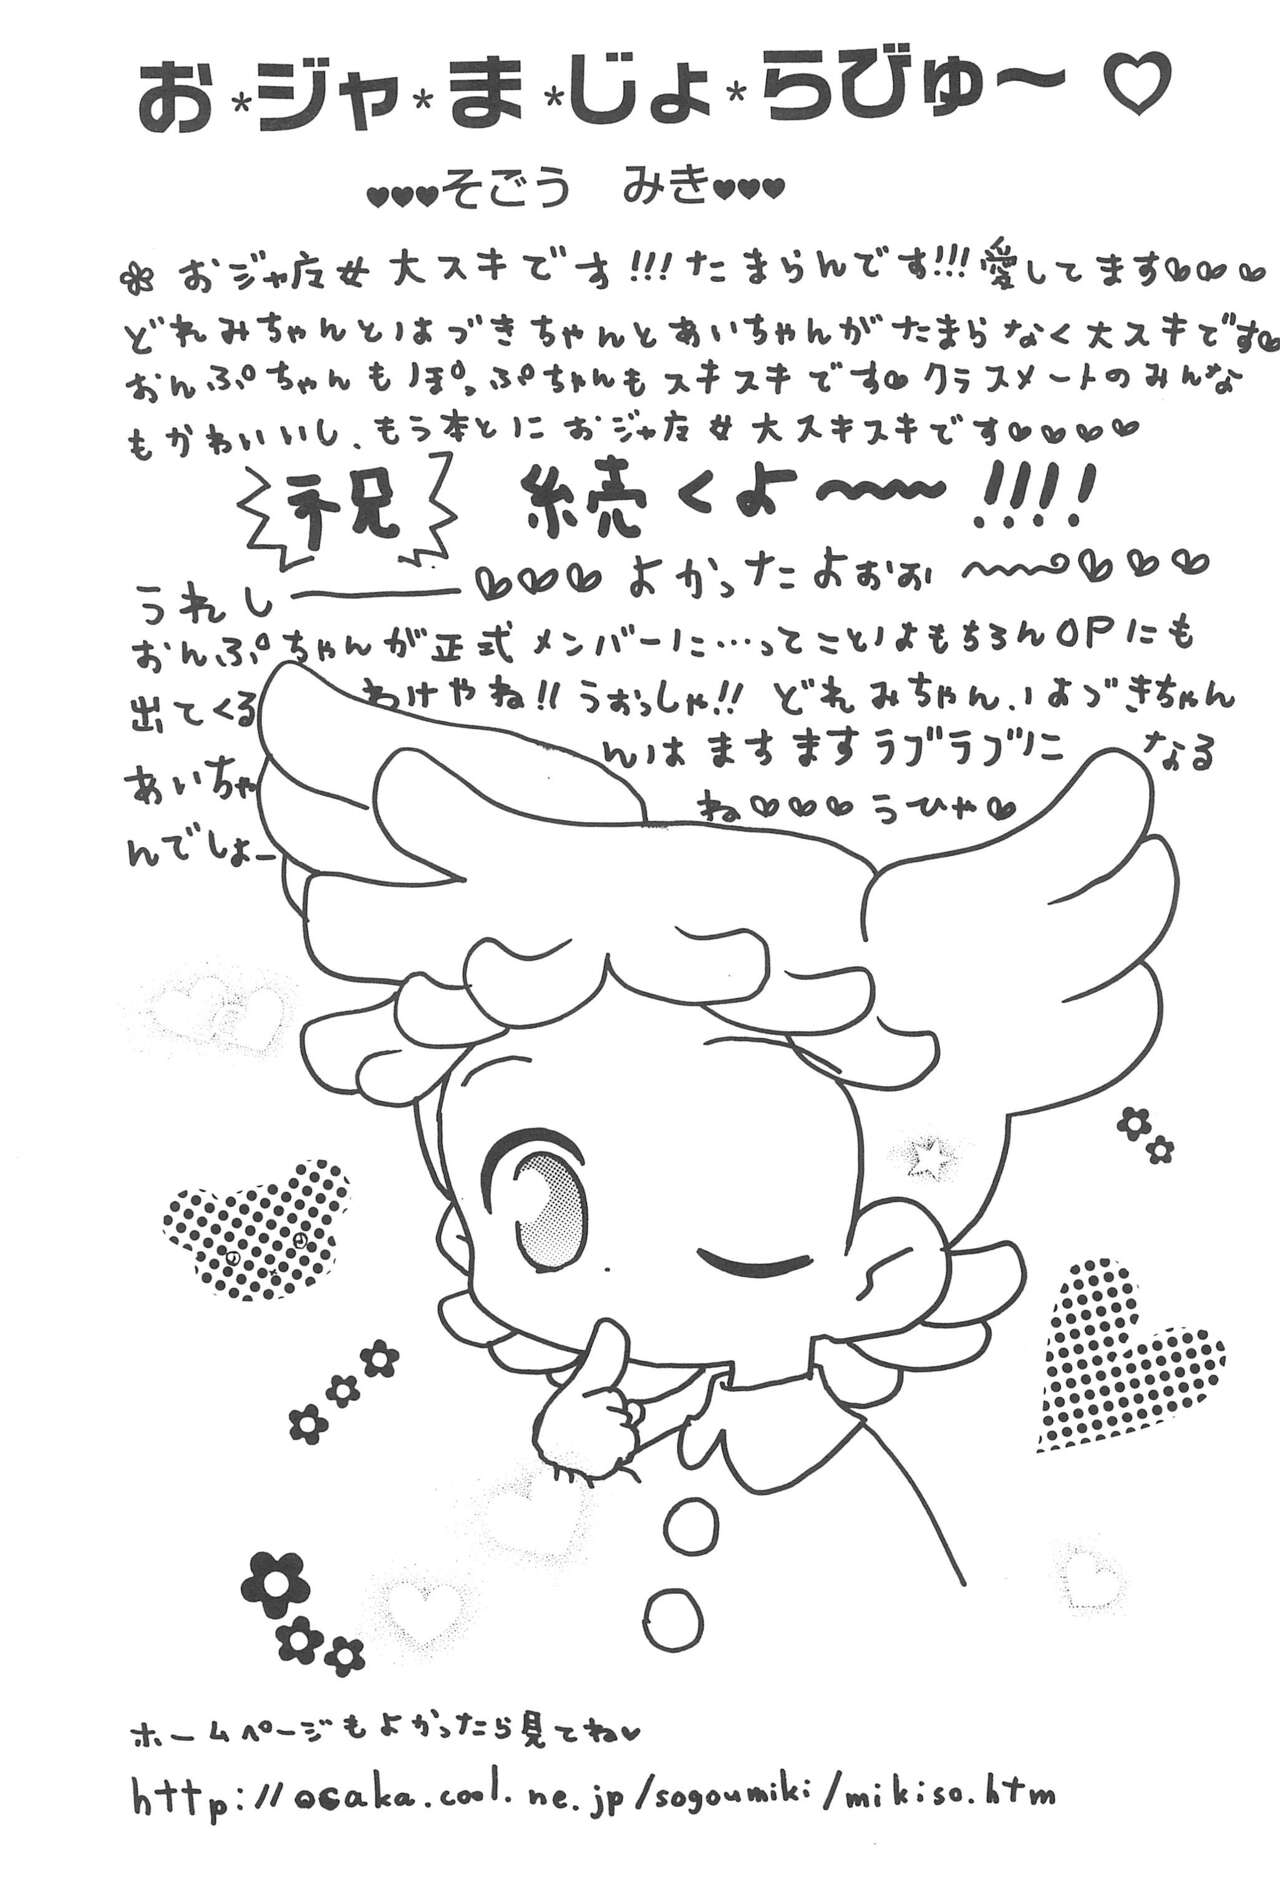 お*ジャ*ま*じょ*らびゅ〜♡
♥♥♥そごう　みき♥♥♥
おジャ魔女大スキです!!!たまらんです!!!愛してます♡♡♡
どれみちゃんとはづきちゃんとあいちゃんがたまらなく大スキです♡
おんぷちゃんもぽっぷちゃんもスキスキです♡クラスメートのみんな
もかわいいし、もう本とにおジャ魔女大スキスキです♡♡♡♡
祝 続くよ〜〜!!!!
うれしー♡♡♡よかったよぉぉ〜〜♡♡♡
おんぷちゃんが正式メンバーに…ってことはもちろんOPにも
出てくるわけやね!!うぉっしゃ!!どれみちゃん、はづきちゃん
あいちゃんはますますラブラブになる
んでしょーね♡♡♡うひゃ♡
ホームページもよかったら見てね♥
http://osaka.cool.ne.jp/sogoumiki/mikiso.htm